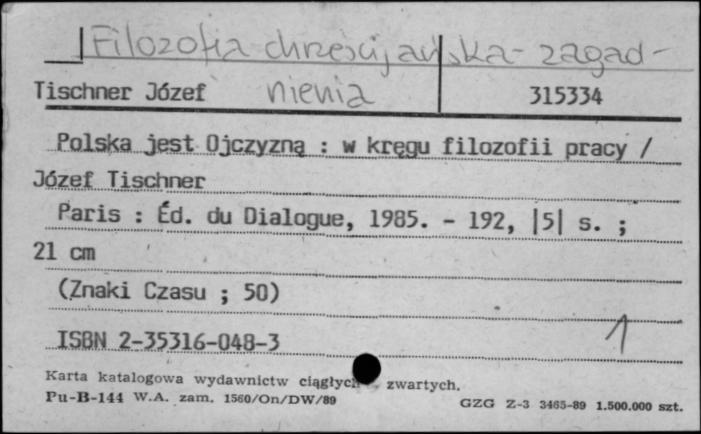 Filozofia chrześcijańska - zagad-
nienia
Tischner Józef 315334
Polska jest Ojczyzną : w kręgu filozofii pracy /
Józef Tischner
Paris : Éd. du Dialogue, 1985. - 192, |5| s. ;
21 cm
(Znaki Czasu ; 50)
ISBN 2-35316-048-3
Karta katalogowa wydawnictw ciągłych zwartych.
Pu-B-144 W.A. zam. 1560/On/DW/89 GZG Z-3 3465-89 1.500.000 szt.